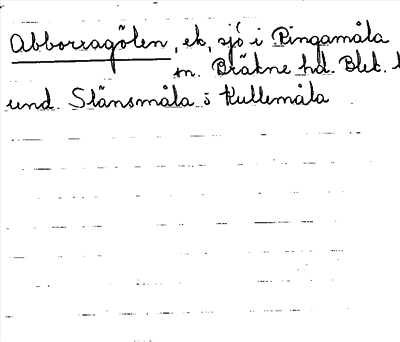 Abborragölen, ek, sjö i Pingamåla
m. Bräkne hd. Blek. l
und. Slänsmåla o Kullemåla